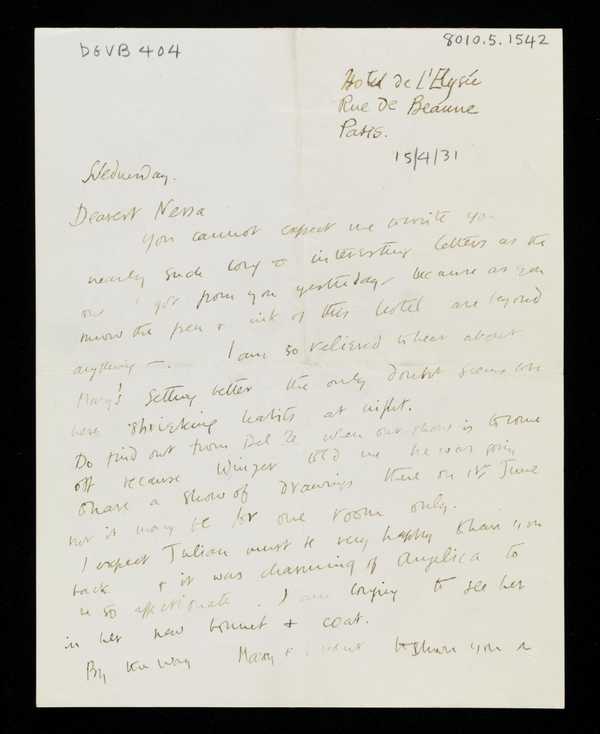 DGVB 404
8010.5.1542
Hotel de L'Elysée
Rue de Beaune
Paris.
15/4/31
Wednesday.
Dearest Nessa
You cannot expect me to write you
nearly such long & interesting letters as the
one I got from you yesterday because as you
know the pen & ink of this hotel are beyond
anything –. I am so relieved to hear about
Mary's getting better the only doubt seems
her shrieking habits at night.
Do find out from Del Re when our show is to come
off because Winger told me he was going
to have a show of drawings there on 1st June
but it may be for one room only.
I expect Julian must be very happy to have you
back & it was charming of Angelica to
be so affectionate. I am longing to see her
in her new bonnet & coat.
By the way Mary & I want to share you a